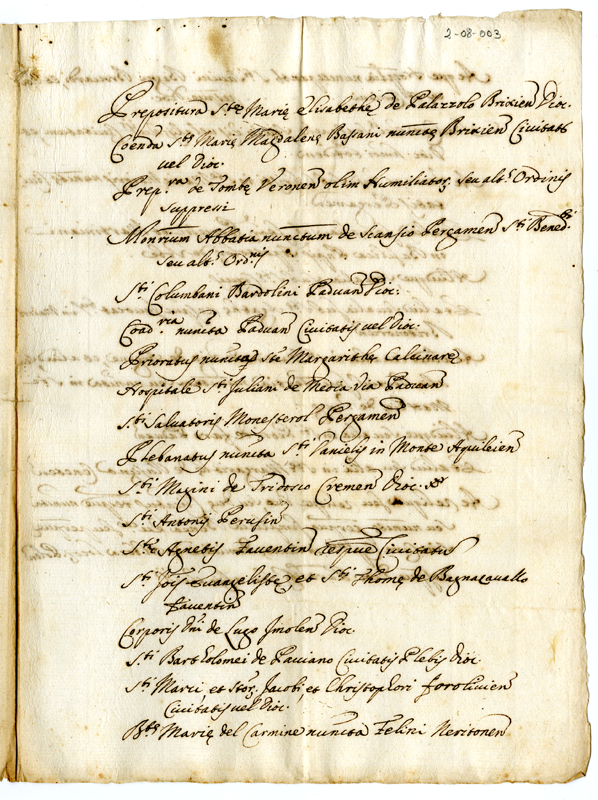 2-08-003
Prepositura Ste Marię Elisabethę de Palazzolo Brixien Dioc.
Coenda Stę Marię Magdalenę Bassani nuncta Brixien Civitatis
vel Dioc.
Prep.ra de Tombę Veronen olim Humiliator, seu alt.s Ordinis
suppressi
Mon rium Abbatia nunctum de Scansio Pergamen Sti Bened.ti
seu alt.s Ord.nis
S.ti Columbani Bardolini Paduan Dioc.
Coad ria nuncta Paduan Civitatis vel Dioc.
Prioratus Ste Margarithę Calvinarę
Hospitale Sti Juliani de Media via Paduan
S.ti Salvatoris Monesterol Pergamen
Plebanatus nuncta S.ti Danielis in Monte Aquileien
S.ti Magini de Tridosio Cremen Dioc.
S.ti Antonij Perusin
S.te Agnetis Faventin Civitatis
S.ti Jois Evangelistę et Sti Thomę de Bagnacavallo
Faventin
Corporis Dni de Lugo Imolen Dioc
S.ti Bartholomei de Paviano Civitatis Plebis Dioc.
S.ti Marci, et Stor. Jacobi, et Christophori Forolivien
Civitatis vel Dioc.
B.tę Marię del Carmine nuncta Felini Neritonen